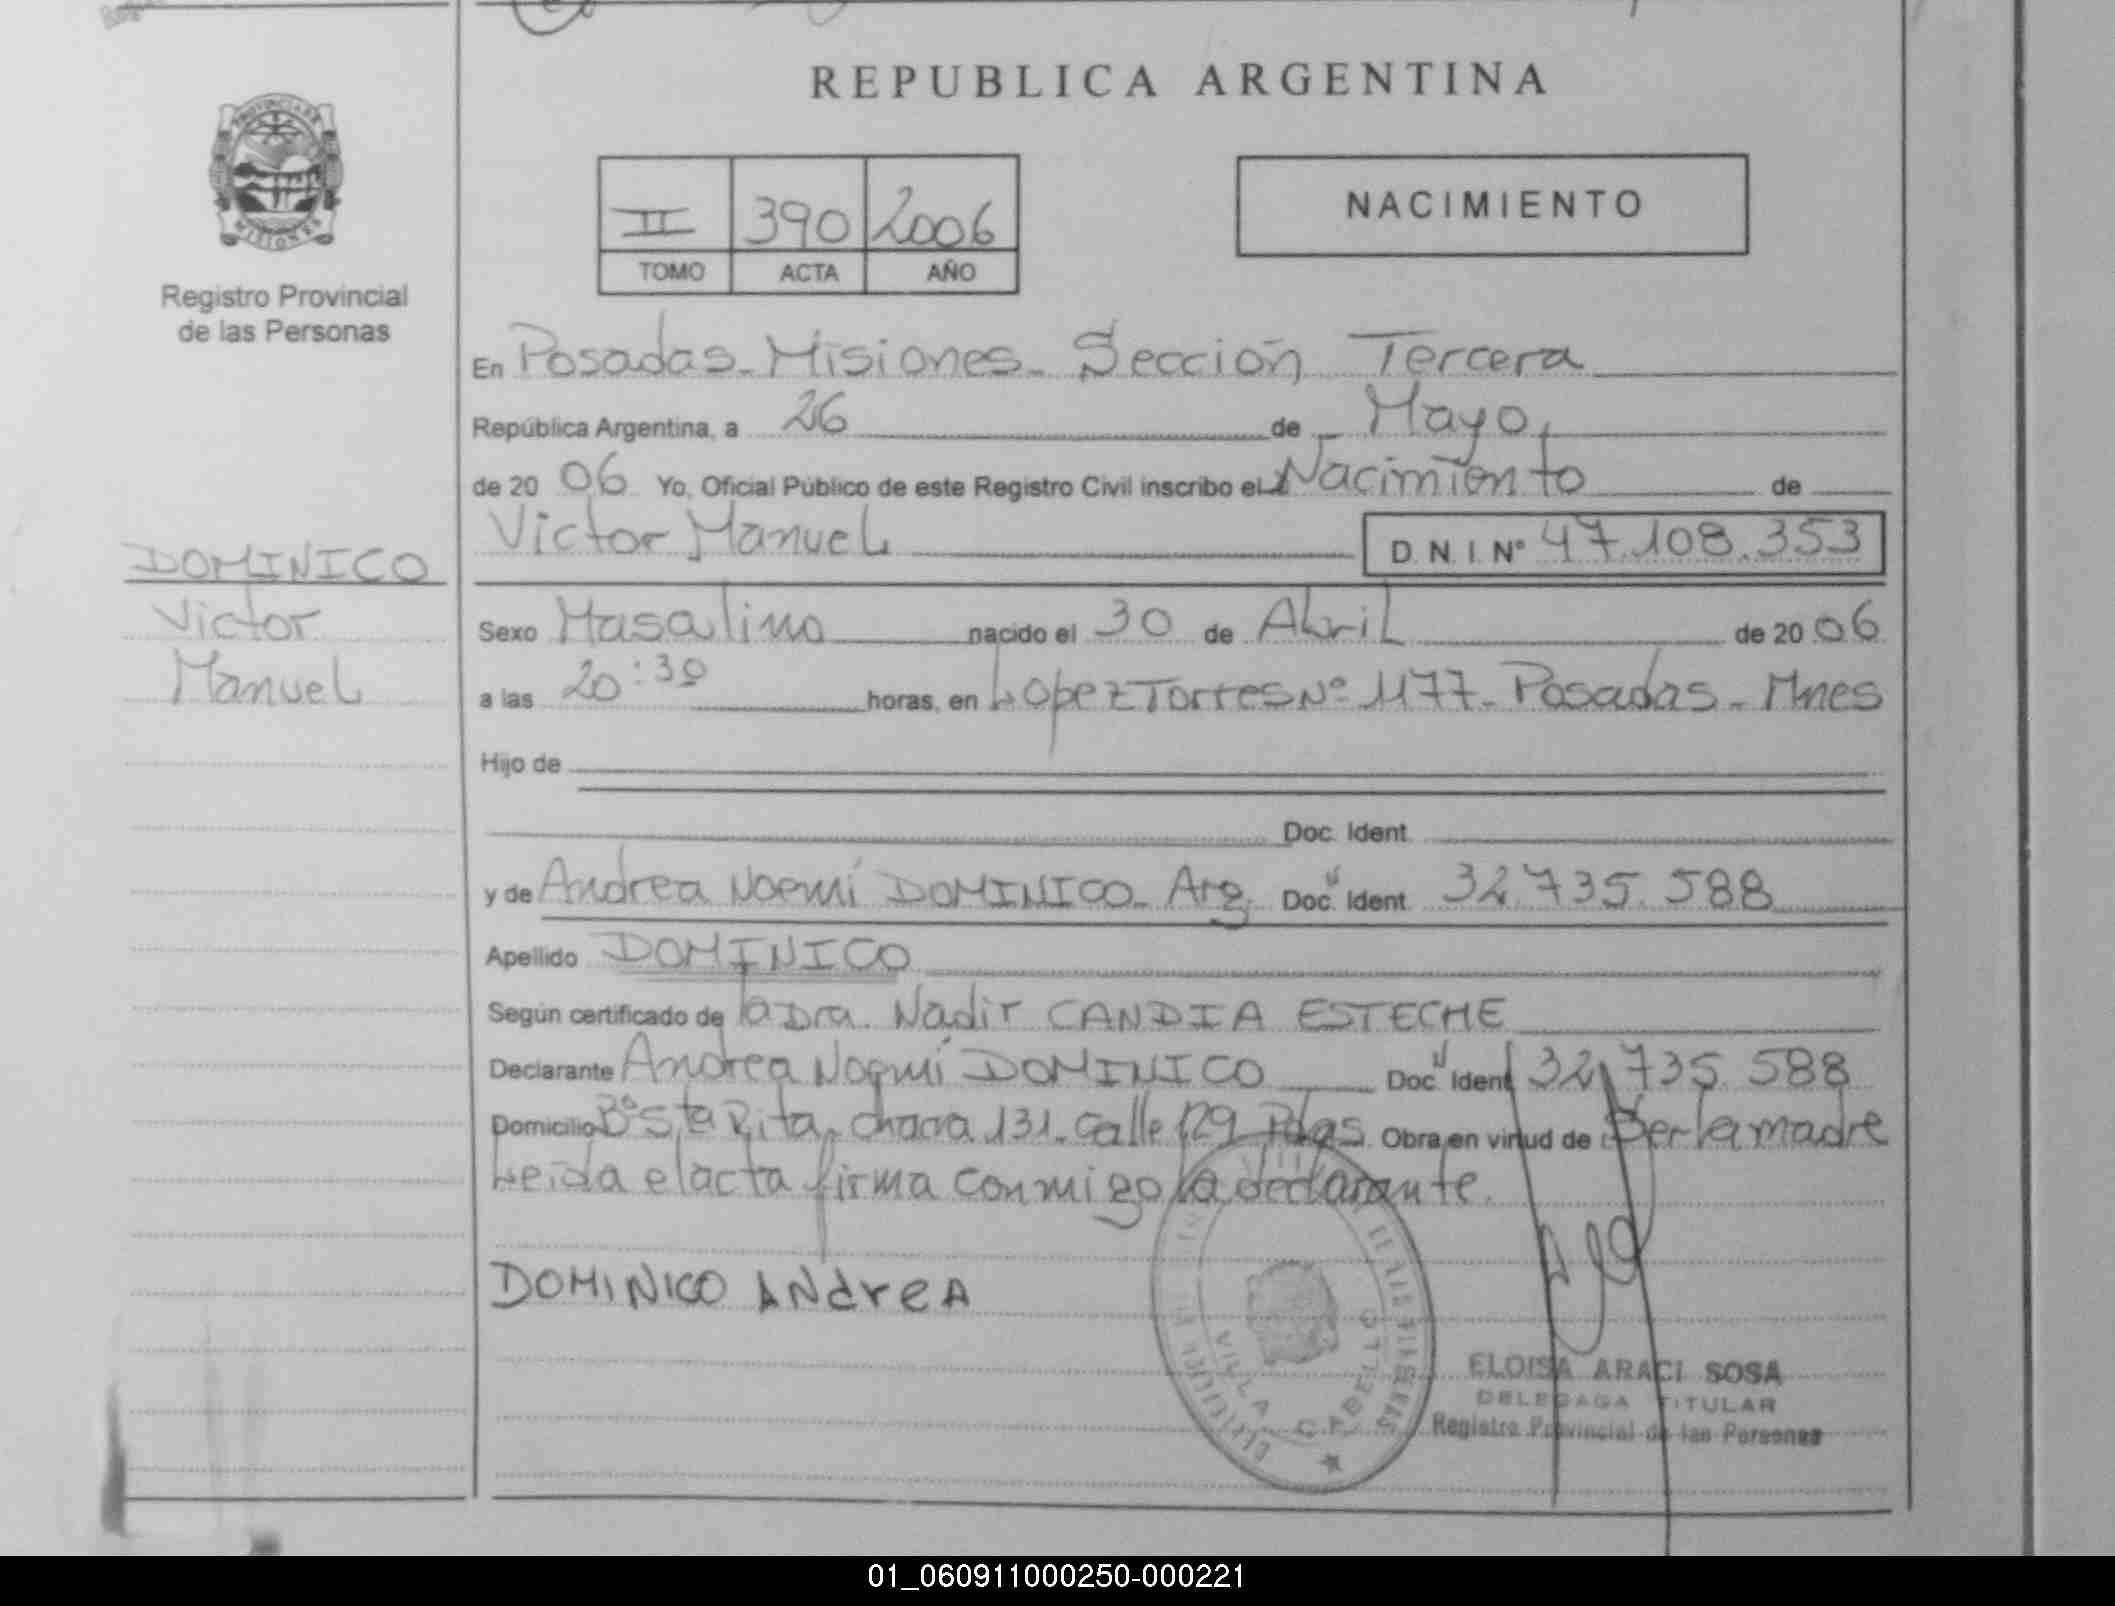 REPUBLICA ARGENTINA
PROVINCIA DE
MISIONES
Registro Provincial
de las Personas
II 390 2006
TOMO ACTA AÑO
NACIMIENTO
En Posadas - Misiones - Sección Tercera
República Argentina, a 26 de Mayo,
de 2006 Yo, Oficial Público de este Registro Civil inscribo el Nacimiento de
Victor Manuel D.N.I. Nº 47.108.353
DOMINICO
Victor
Manuel
Sexo Masculino nacido el 30 de Abril de 2006
a las 20:30 horas, en Lopez Torres Nº 1177 - Posadas - Mnes
Hijo de
Doc. Ident.
y de Andrea Noemí DOMINICO - Arg. Doc. Ident. 32.735.588
Apellido DOMINICO
Según certificado de la Dra. Nadir CANDIA ESTECHE
Declarante Andrea Noemí DOMINICO Doc. Ident. 32.735.588
Domicilio Bº Sta Rita, chacra 131. Calle 129 Pdas. Obra en virtud de : Ser la madre
Leida el acta firma conmigo la declarante.
DOMINICO ANdreA
VILLA CABELLO
ELOISA ARACI SOSA
DELEGADA TITULAR
Registro Provincial de las Personas
01_060911000250-000221